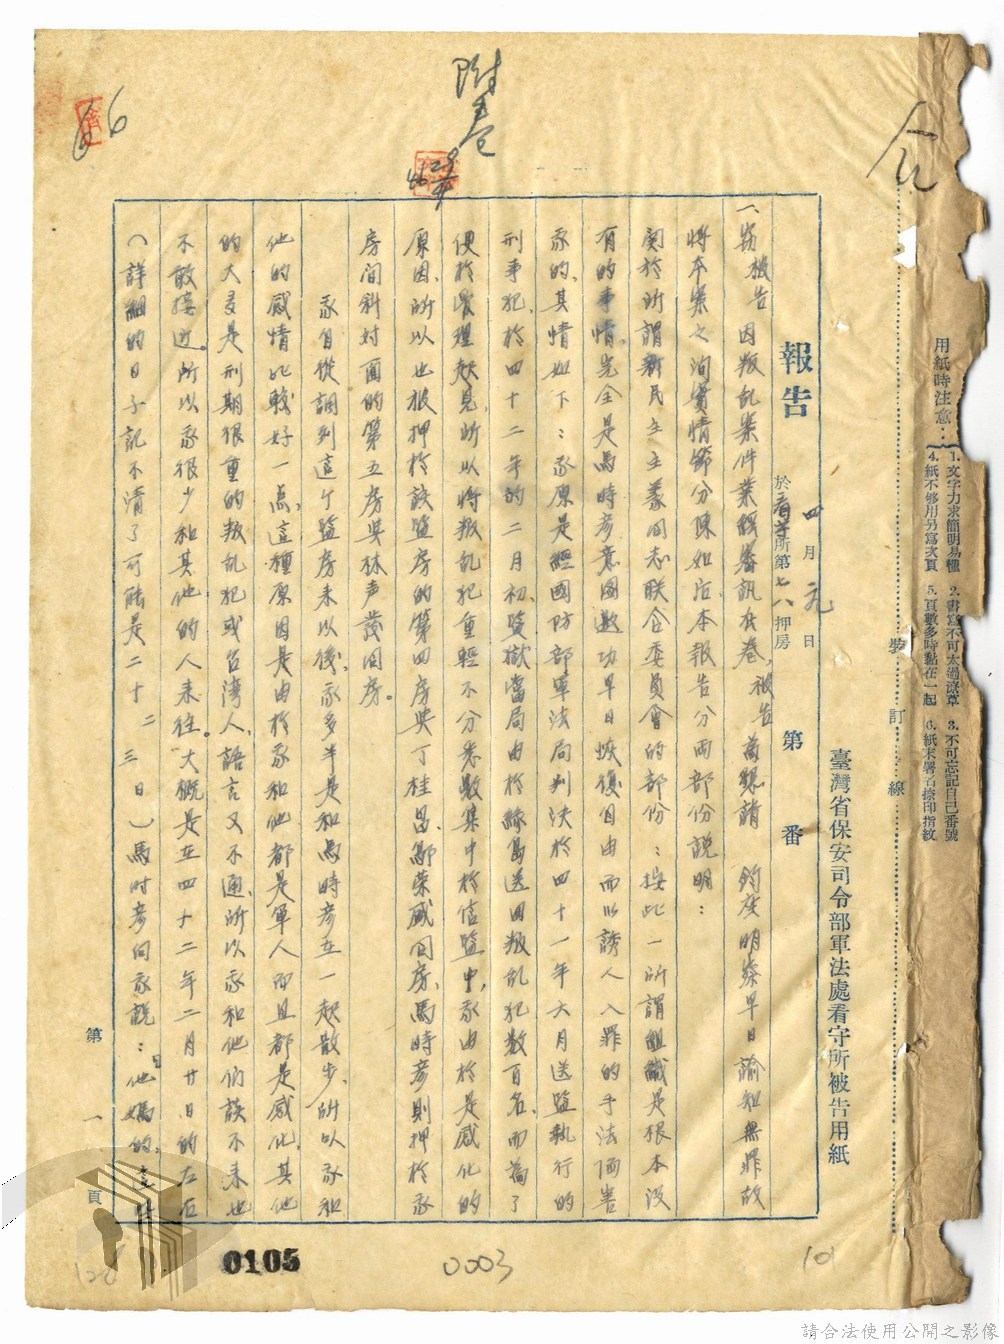 用紙時注意：
1. 文字力求簡明易懂
2. 書寫不可太過潦草
3. 不可忘記自己番號
4. 紙不够用另寫次頁
5. 頁數多時黏在一起
6. 紙末署名捺印指紋
裝訂線
臺灣省保安司令部軍法處看守所被告用紙
報告
四月元日
於看守所第七八押房
第 番
一、竊被告因叛乱案件業經審訊在卷，被告為懇請 鈞座明察早日諭知無罪故
將本案之詢實情節分陳如后本報告分兩部份說明：
関於所謂新民主主義同志联合委員會的部份：按此一所謂組織是根本沒
有的事情，完全是馬時彥意圖邀功早日恢復自由而以誘人入罪的手法陷害
我的，其情如下：我原是經國防部軍法局判決於四十一年六月送監執行的
刑事犯，於四十二年的二月初，監獄當局由於綠島送回叛乱犯数百名，而為了
便於管理起見，所以將叛乱犯重輕不分悉數集中於信監中，我由於是感化的
原因，所以也被押於該監房的第四房與丁桂昌、鄒榮威同房，馬時彥則押於我
房间斜对面的第五房與林声茂同房。
我自從調到這个監房来以後，我多半是和馬時彥在一起散步，所以我和
他的感情比較好一点，這種原因是由於我和他都是軍人而且都是感化，其他
的大多是刑期很重的叛乱犯或台灣人，語言又不通，所以我和他们談不来也
不敢接近，所以我很少和其他的人来往。大概是在四十二年二月廿日的左右
（詳細的日子記不清了可能是二十二三日）馬时彥向我說：「他媽的，
第一頁
附卷
66
0105
0003
101
請合法使用公開之影像